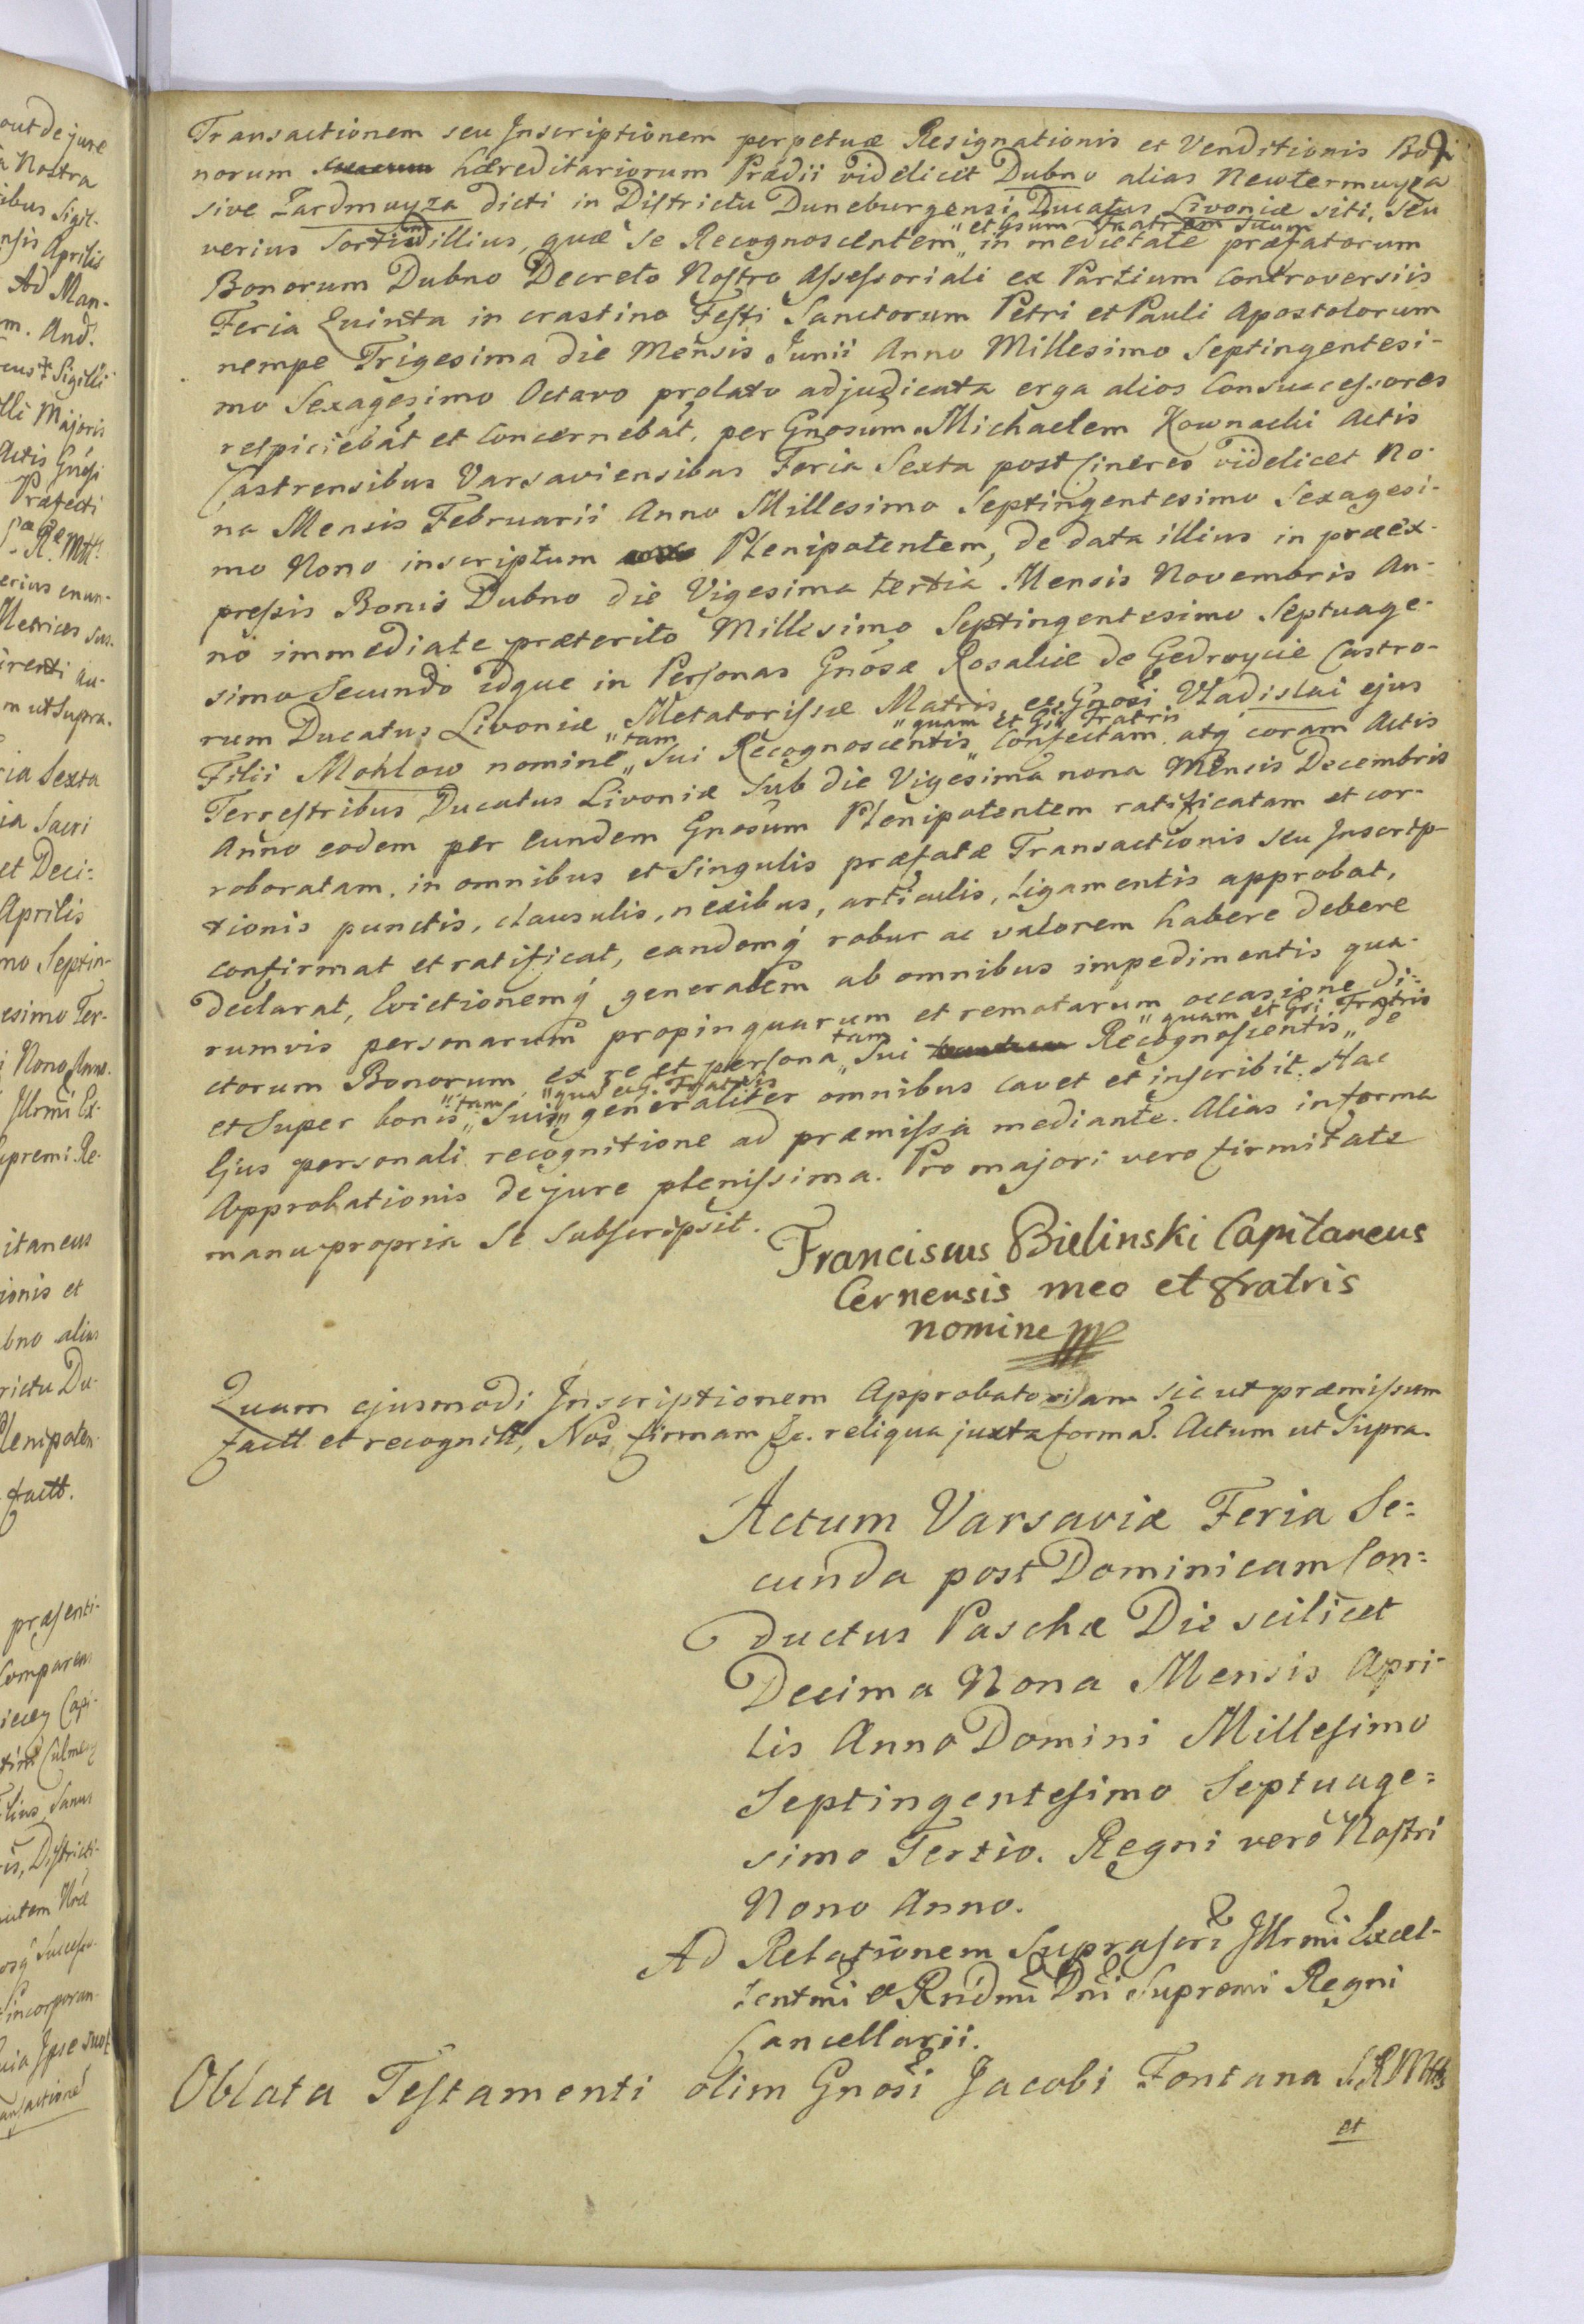 Transactionem seu Inscriptionem perpetuæ Resignationis et Venditionis Bo-
norum hæreditariorum Prædii videlicet Dubno alias Newtermuyza
sive Zardmuyza dicti in Districtu Duneburgensi Ducatus Livoniæ siti, seu
verius Sortis illius, quæ se Recognoscentem „et Gsum Fratrem suum in medietate præfatorum
Bonorum Dubno Decreto Nostro Assessoriali ex Partium Controversiis
Feria Quinta in crastino Festi Sanctorum Petri et Pauli Apostolorum
nempe Trigesima die Mensis Junii Anno Millesimo Septingentesi-
mo Sexagesimo Octavo prolato adjudicata erga alios Consuccessores
respiciebat et Concernebat, per Gnosum Michaelem Kownacki Actis
Castrensibus Varsaviensibus Feria Sexta post Cineres videlicet No-
na Mensis Februarii Anno Millesimo Septingentesimo Sexagesi-
mo Nono inscriptum Plenipotentem, de data illius in præex-
pressis Bonis Dubno die Vigesima tertia Mensis Novembris An-
no immediate præterito Millesimo Septingentesimo Septuage-
simo Secundo idque in Personas Gnosæ Rosaliæ de Gedroycie Castro-
rum Ducatus Livoniæ Metatorissæ Matris, et Gnosi Vladislai ejus
Filii Mohlow nomine „tam Sui Recognoscentis „quam et Gsi Fratris Confectam, atq coram Actis
Terrestribus Ducatus Livoniæ Sub die Vigesima nona Mensis Decembris
Anno eodem per eundem Gnosum Plenipotentem ratificatam et cor-
roboratam, in omnibus et Singulis præfatæ Transactionis seu Inscrip-
tionis punctis, clausulis, nexibus, articulis, Ligamentis approbat,
confirmat et ratificat, eandemq robur ac valorem habere debere
declarat, Evictionemq generalem ab omnibus impedimentis qua-
rumvis personarum propinquarum et remotarum occasione di-
ctorum Bonorum ex re et persona „tam Sui Recognoscentis „quam et Gsi Fratris de
et Super bonis „tam Suis „qua eig. Fratris generaliter omnibus cavet et inscribit. Hac
Ejus personali recognitione ad præmissa mediante. Alias in forma
Approbationis de jure plenissima. Pro majori vero firmitate
manu propria se subscripsit.
Franciscus Bielinski Capitaneus
Cernensis meo et fratris
nomine mp
Quam ejusmodi Inscriptionem Approbatoriam sic ut præmissum
factt et recognitt, Nos, firmam &c. reliqua juxta forma. Actum ut Supra.
Actum Varsaviæ Feria Se=
cunda post Dominicam Con=
ductus Paschæ Die scilicet
Decima Nona Mensis Apri-
lis Anno Domini Millesimo
Septingentesimo Septuage=
simo Tertio. Regni vero Nostri
Nono Anno.
Ad Relationem Suprascri Illrmi Excel-
lentmi & Rndmi Dni Supremi Regni
Cancellarii.
Oblata Testamenti olim Gnosi Jacobi Fontana S.R.Mttis
et